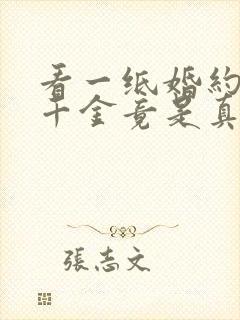 看一纸婚約
千金竟是真
張志文